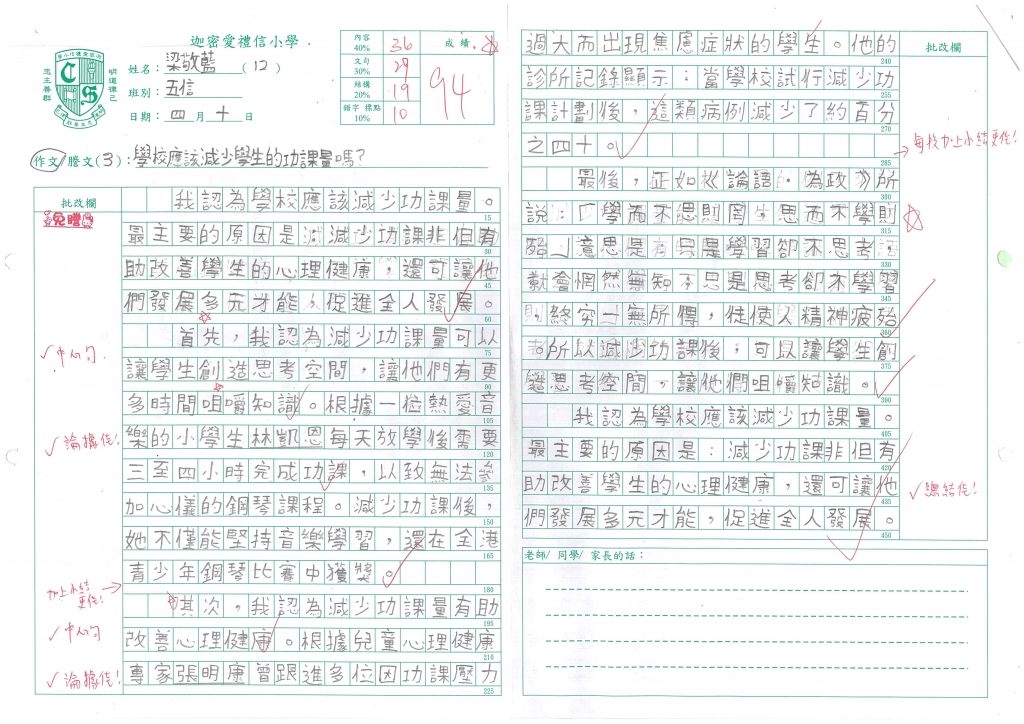 迦密愛禮信小學
忠主善群
明道律己
姓名：梁敬藍（12）
班別：五信
日期：四月十日
內容 40% 36
文句 30% 29
結構 20% 19
錯字 標點 10% 10
成績
94
作文/謄文(3)：學校應該減少學生的功課量嗎？
批改欄
免謄
我認為學校應該減少功課量。
15
最主要的原因是減少功課非但有
30
助改善學生的心理健康，還可讓他
45
們發展多元才能，促進全人發展。
60
首先，我認為減少功課量可以
75
✓中心句
讓學生創造思考空間，讓他們有更
90
多時間咀嚼知識。根據一位熱愛音
105
✓論據佳！
樂的小學生林凱恩每天放學後需要
120
三至四小時完成功課，以致無法參
135
加心儀的鋼琴課程。減少功課後，
150
她不僅能堅持音樂學習，還在全港
165
青少年鋼琴比賽中獲獎。
180
加上小結更佳！
其次，我認為減少功課量有助
195
✓中心句
改善心理健康。根據兒童心理健康
210
✓論據佳！
專家張明康曾跟進多位因功課壓力
225
批改欄
過大而出現焦慮症狀的學生。他的
240
診所記錄顯示：當學校試行減少功
255
課計劃後，這類病例減少了約百分
270
之四十。
285
每校加上小結更佳！
最後，正如《論語·為政》所
300
說：「學而不思則罔，思而不學則
315
殆」意思是只是學習卻不思考
330
就會惘然無知，只是思考卻不學習
345
則終究一無所得，徒使人精神疲殆
360
所以減少功課後，可以讓學生創
375
造思考空間，讓他們咀嚼知識。
390
我認為學校應該減少功課量。
405
最主要的原因是：減少功課非但有
420
助改善學生的心理健康，還可讓他
435
✓總結佳！
們發展多元才能，促進全人發展。
450
老師/ 同學/ 家長的話：